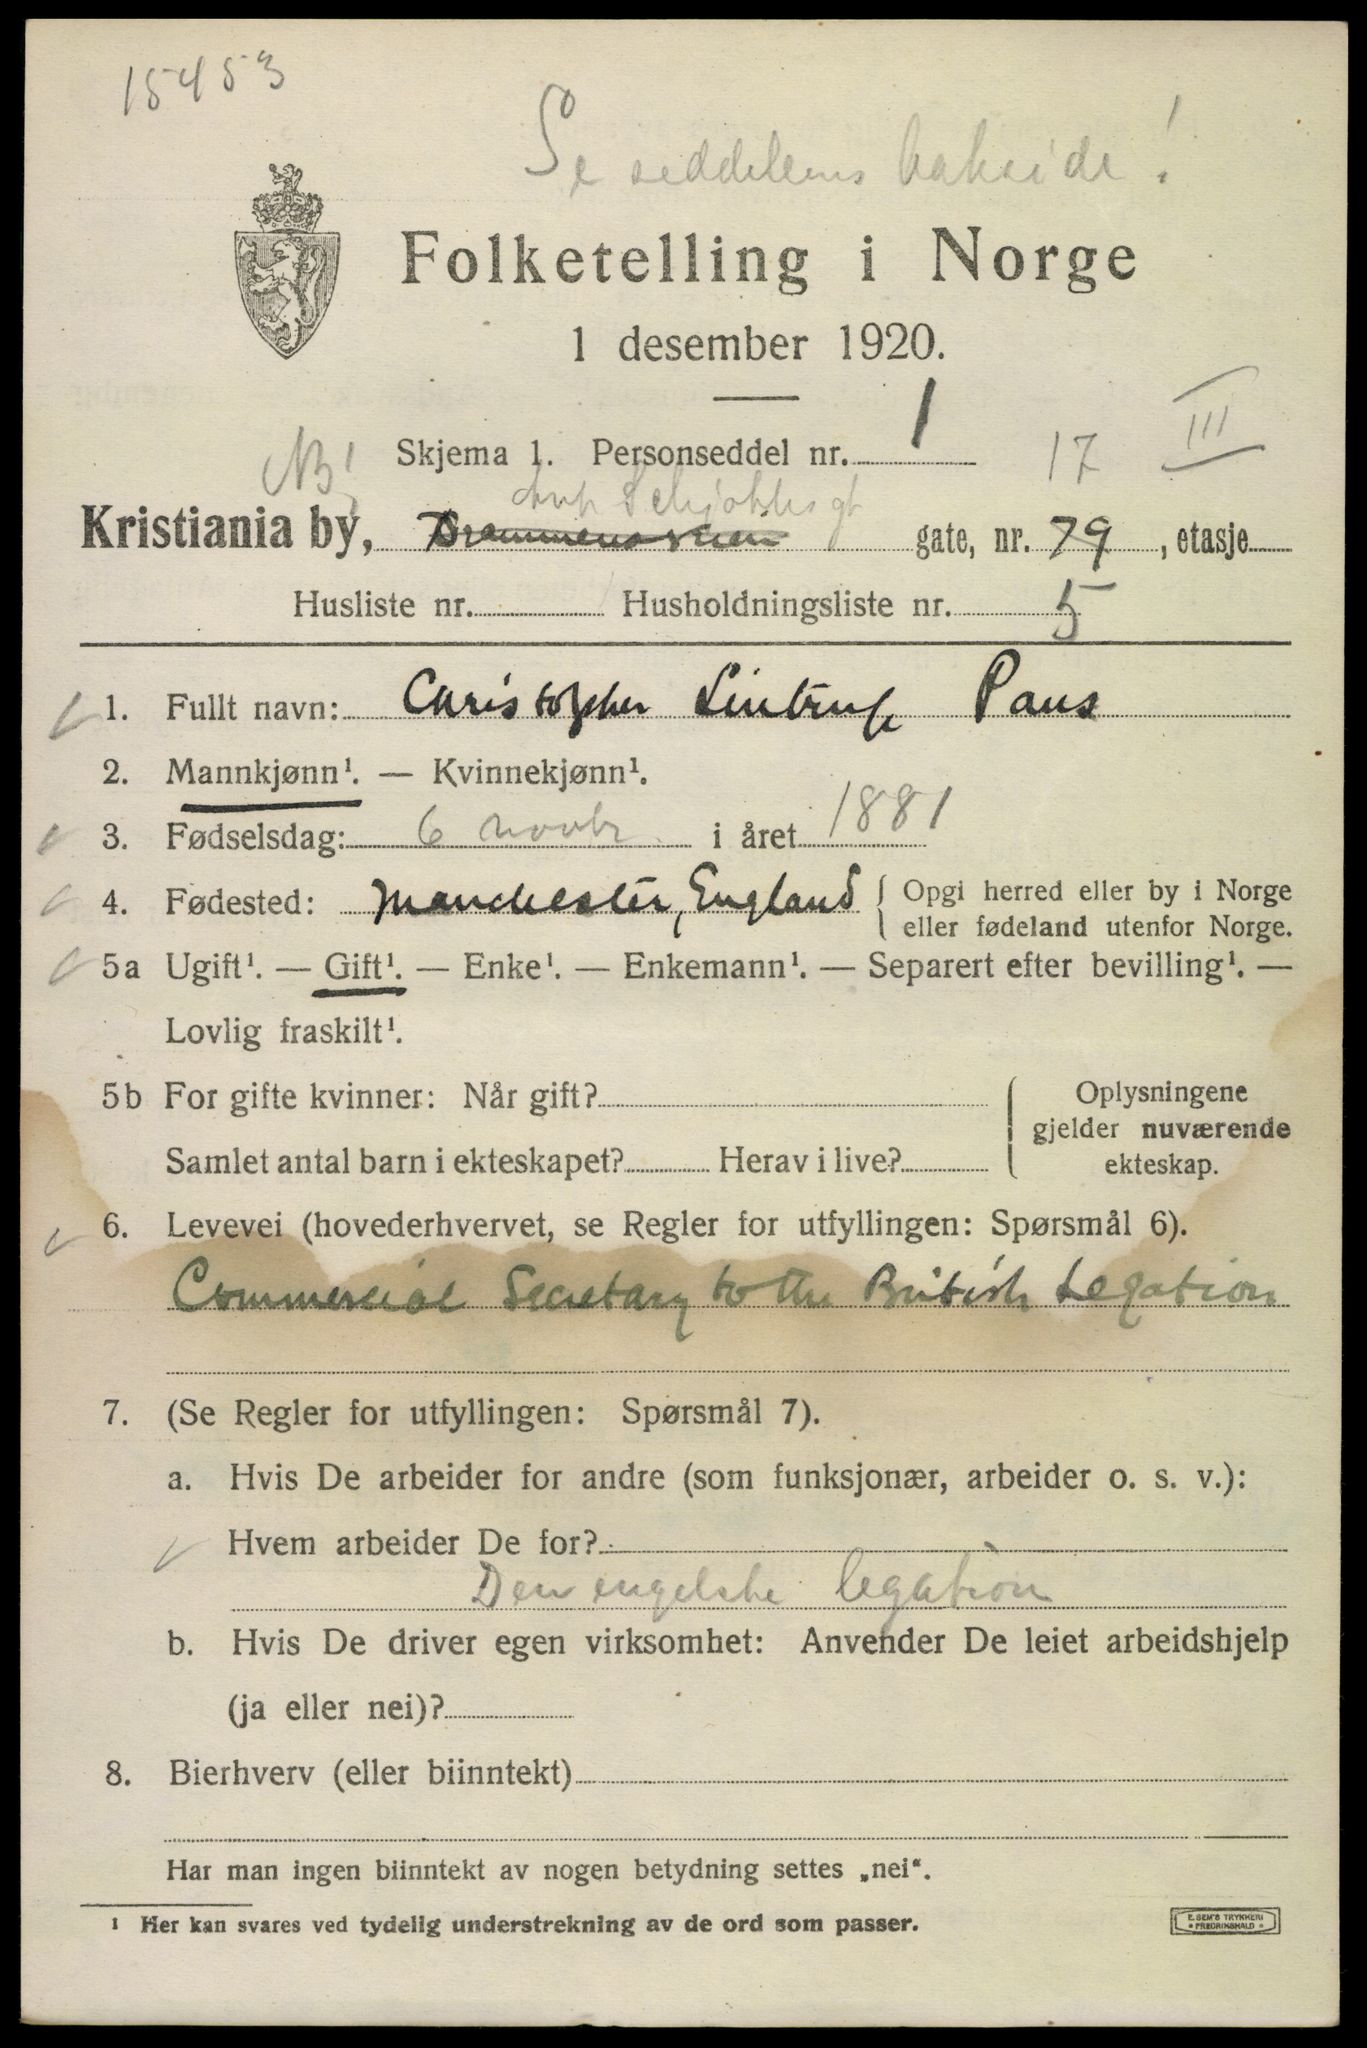 15453
Se seddelens bakside!
Folketelling i Norge
1 desember 1920.
Skjema 1. Personseddel nr. 1 17 III
NB!
Schjøttsgt
Kristiania by, Drammensveien gate, nr. 79, etasje
Husliste nr. Husholdningsliste nr. 5
1. Fullt navn: Christopher Lintrup Paus
2. Mannkjønn¹. — Kvinnekjønn¹.
3. Fødselsdag: 6 novbr i året 1881
4. Fødested: Manchester, England { Opgi herred eller by i Norge
eller fødeland utenfor Norge.
5a Ugift¹. — Gift¹. — Enke¹. — Enkemann¹. — Separert efter bevilling¹. —
Lovlig fraskilt¹.
5b For gifte kvinner: Når gift? Oplysningene
gjelder nuværende
Samlet antal barn i ekteskapet? Herav i live? ekteskap.
6. Levevei (hovederhvervet, se Regler for utfyllingen: Spørsmål 6).
Commercial Secretary to the British Legation
7. (Se Regler for utfyllingen: Spørsmål 7).
a. Hvis De arbeider for andre (som funksjonær, arbeider o. s. v.):
Hvem arbeider De for?
Den engelske legation
b. Hvis De driver egen virksomhet: Anvender De leiet arbeidshjelp
(ja eller nei)?
8. Bierhverv (eller biinntekt)
Har man ingen biinntekt av nogen betydning settes „nei“.
¹ Her kan svares ved tydelig understrekning av de ord som passer.
E. SEM'S TRYKKERI
* FREDRIKSHALD *